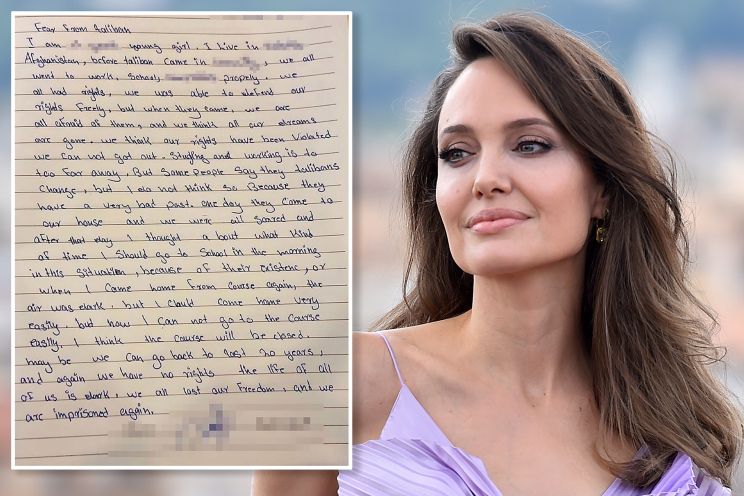 Fear From taliban
I am young girl. I live in
Afghanistan, before taliban came in , we all
went to work, School, propely, we
all had rights, we was able to defend our
rights Freely, but when they came, we are
all afraid of them, and we think all our dreams
are gone. we think our rights have been violated
we can not get out. Studing and working is to
too far away. But Some people Say they talibans
Change, but I do not think so Because they
have a very bad past. one day they come to
our house and we were all scared and
after that day I thought a bout what kind
of time I Should go to School in the morning
in this situation, because of their existenc, or
when I came home from course again, the
air was dark. but I Could come home very
easily. but now I can not go to the course
easily. I think the course will be closed.
may be we can go back to last 20 years,
and again we have no rights the life of all
of us is dark, we all lost our Freedom, and we
are imprisoned again.